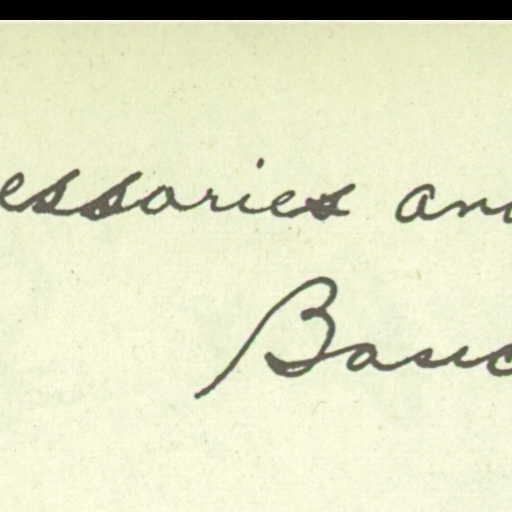 essories an
Basic